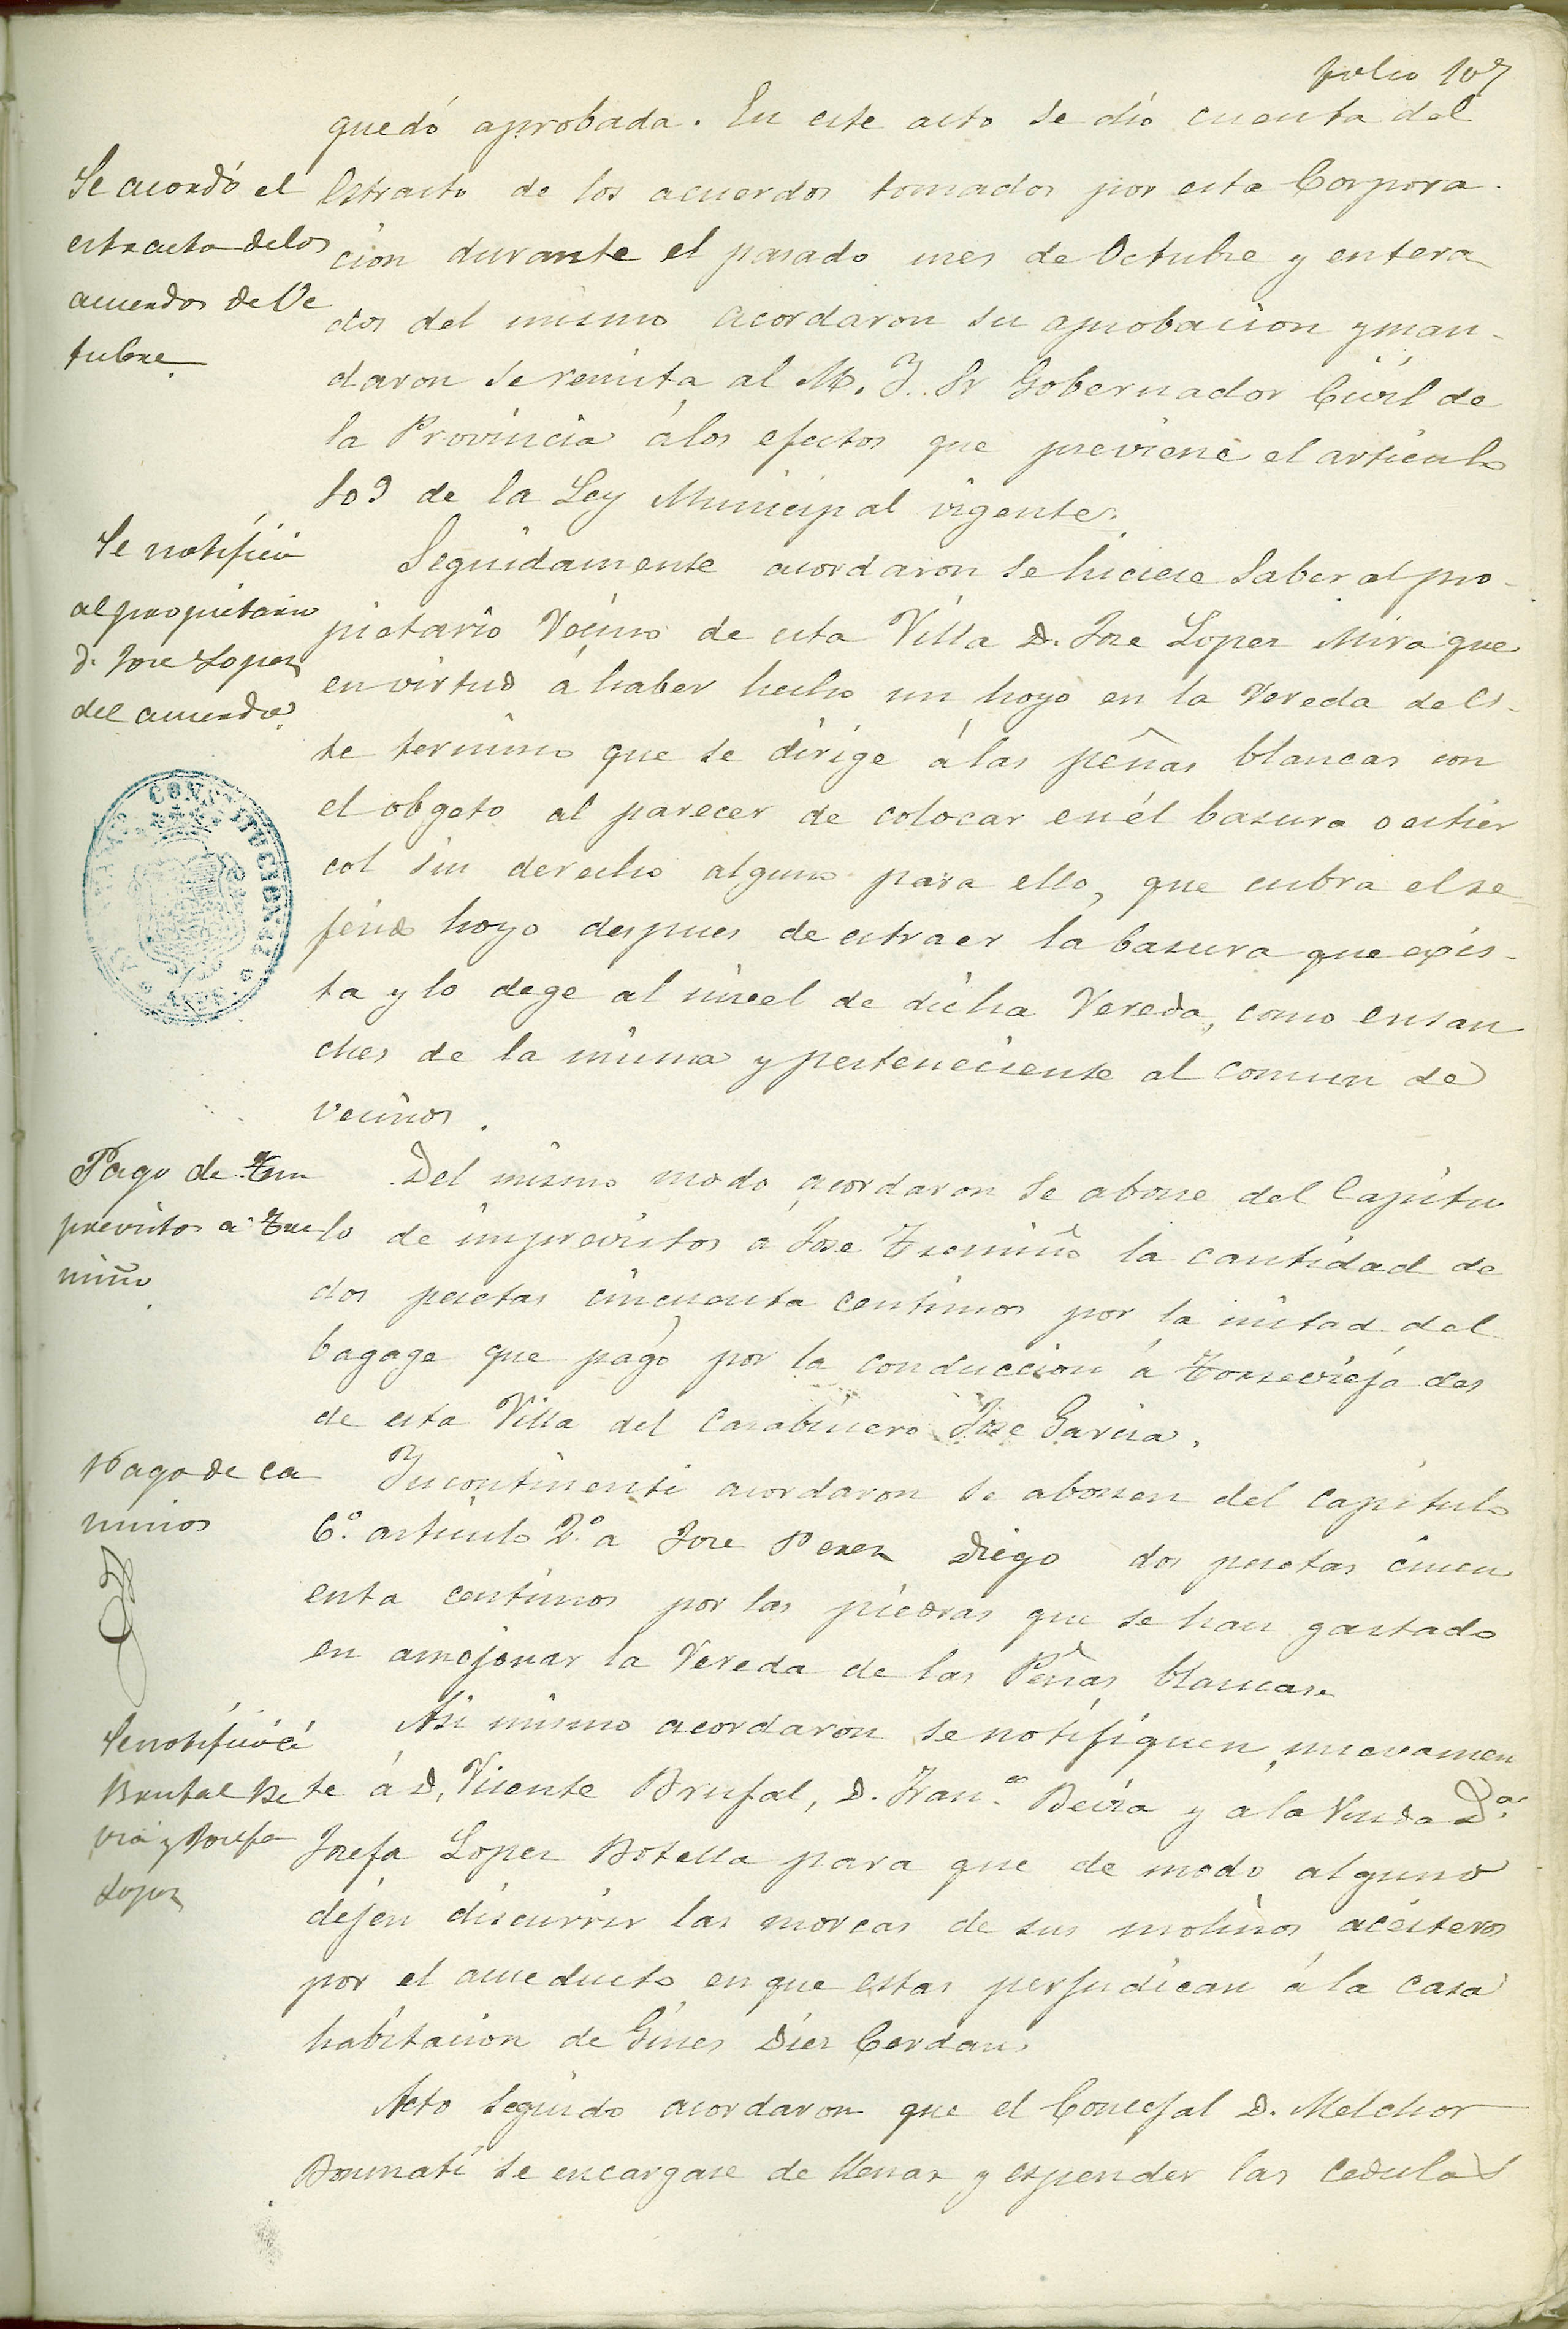 folio 107
quedó aprobada. En este acto se dió cuenta del
Se acordó el
estracto delos
acuerdos de Oc
tubre.
Estracto de los acuerdos tomados por esta Corpora-
cion durante el pasado mes de Octubre y entera
dos del mismo acordaron su aprobacion y man-
daron se remita al M. Y. Sr Gobernador Civil de
la Provincia álos efectos que previene el articulo
109 de la Ley Municipal vigente.
Se notificó
al propietario
D. Jose Lopez
del acuerdo.
Seguidamente acordaron se hiciese saber al pro-
pietario Vecino de esta Villa D. Jose Lopez Mira que
en virtud á haber hecho un hoyo en la Vereda de es-
te termino que se dirige á las peñas blancas con
el obgeto al parecer de colocar en él basura o estier
col sin derecho alguno para ello, que cubra el re
ferido hoyo despues de estraer la basura que exis-
ta y lo dege al nivel de dicha Vereda, como ensan
ches de la misma y perteneciente al comun de
vecinos.
AYUNTAMIENTO CONSTITUCIONAL
Pago de Im
previstos a Tre
miño.
Del mismo modo acordaron se abone del Capitu
lo de imprevistos a Jose Tremiño la cantidad de
dos pesetas cincuenta centimos por la mitad del
bagage que pagó por la conduccion á Torrevieja des
de esta Villa del Carabinero Jose Garcia.
Pago de ca
minos
Incontinenti acordaron se abonen del capitulo
6.º articulo 2.º a Jose Perez Diego dos pesetas cincu
enta centimos por las piedras que se han gastado
en amojonar la Vereda de las Peñas blancas.
Se notificó á
Brufal Be
viá y Josefa
Lopez
Asi mismo acordaron se notifiquen nuevamen
te á D. Vicente Brufal, D. Fran.co Beviá y a la Viuda D.ª
Josefa Lopez Botella para que de modo alguno
dejen discurrir las morcas de sus molinos aceiteros
por el acueducto en que estas perjudican á la casa
habitacion de Gines Diez Cerdan.
Acto seguido acordaron que el Concejal D. Melchor
Bonmatí se encargase de llenar y espender las cedulas